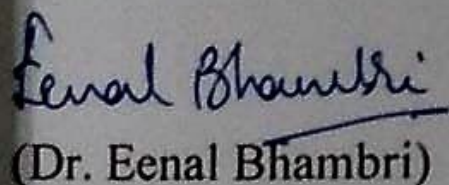 Eenal Bhambri
(Dr. Eenal Bhambri)